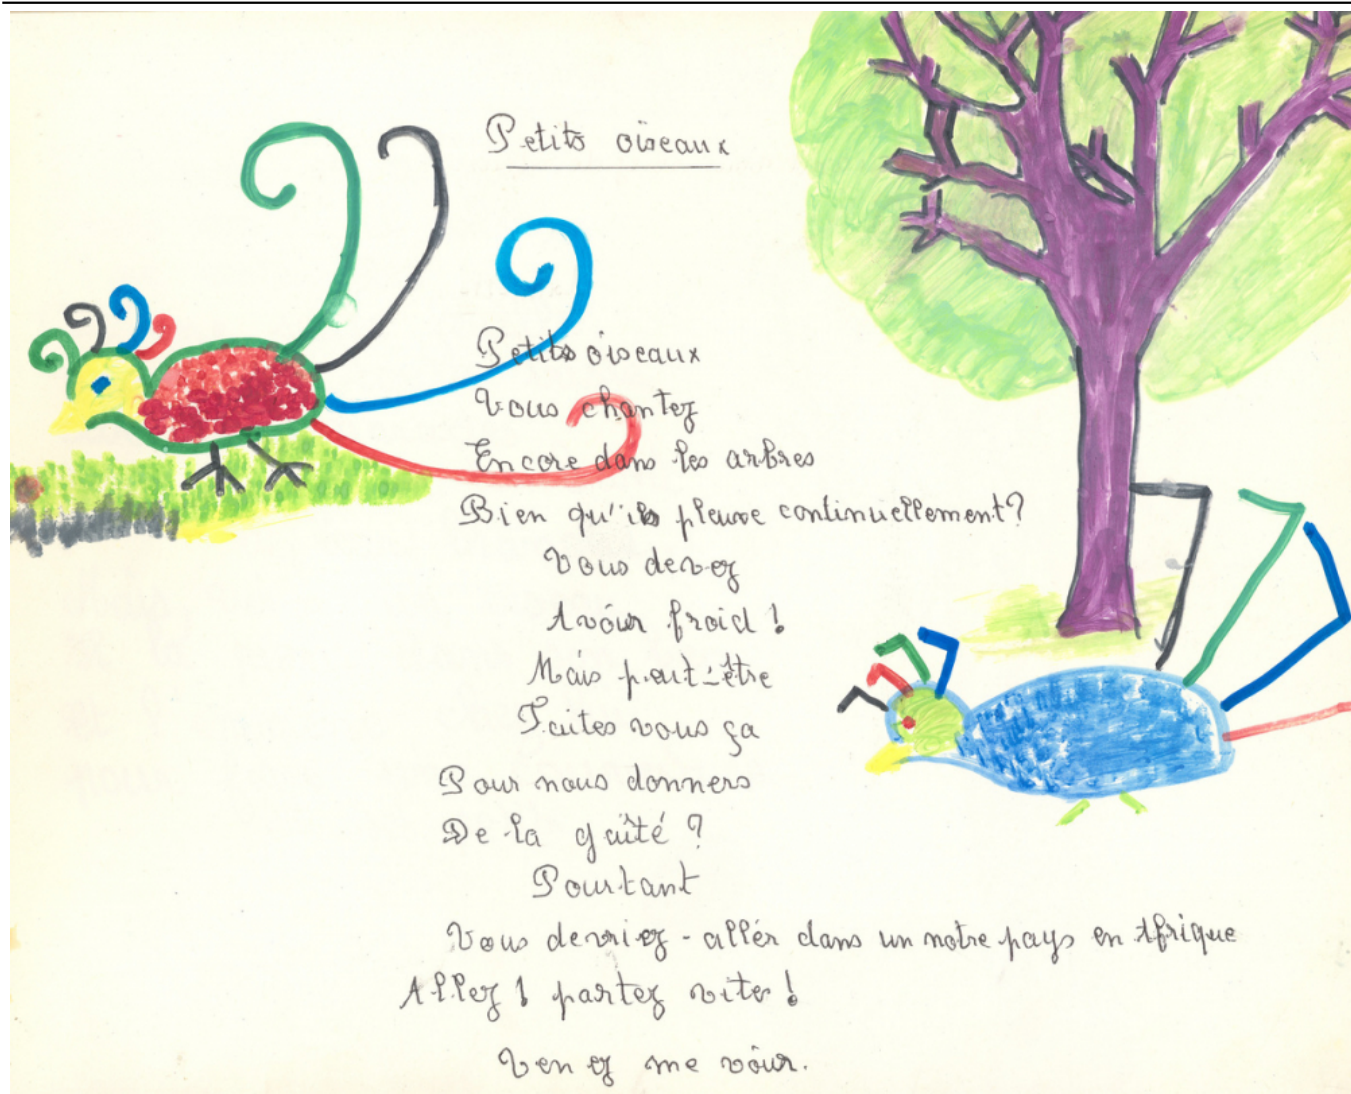 Petits oiseaux
Petits oiseaux
Vous chantez
Encore dans les arbres
Bien qu'il pleuve continuellement?
Vous devez
Avoir froid !
Mais peut-être
Faites vous ça
Pour nous donners
De la gaîté ?
Pourtant
Vous devriez - allér dans un notre pays en Afrique
Allez ! partez vite !
Venez me voir.